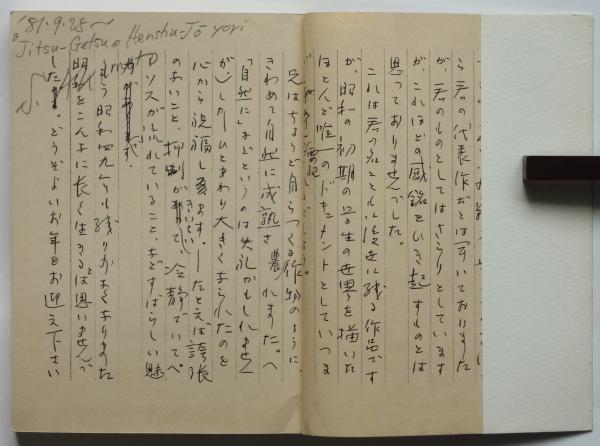 '81.9.25~
"Jitsu-Getsu" Henshu-Jō yori
ら君の代表作だとは聞いておりました
が、君のものとしてはさらりとしています
が、これほどの感銘をひき起すものとは
思っておりませんでした。
これは君の名とともに後世に残る作品です
が、昭和の初期の学生の世界を描いた
ほとんど唯一のドキュメントとしていつま
君はちょうど自らつくる作物のように、
きわめて自然に成熟されました。(
「自然に」などというのは失礼かもしれません
が)しかしひとまわり大きくなられたのを
心から祝福し ます。したとえば誇張
のないこと、抑制が きいていて、冷静でいてペ
ーソスが流れていること、などすばらしい魅
もう昭和四九年も残り少なくなりました
昭和をこんなに長く生きるとは思いませんで
した。どうぞよいお年をお迎え下さい